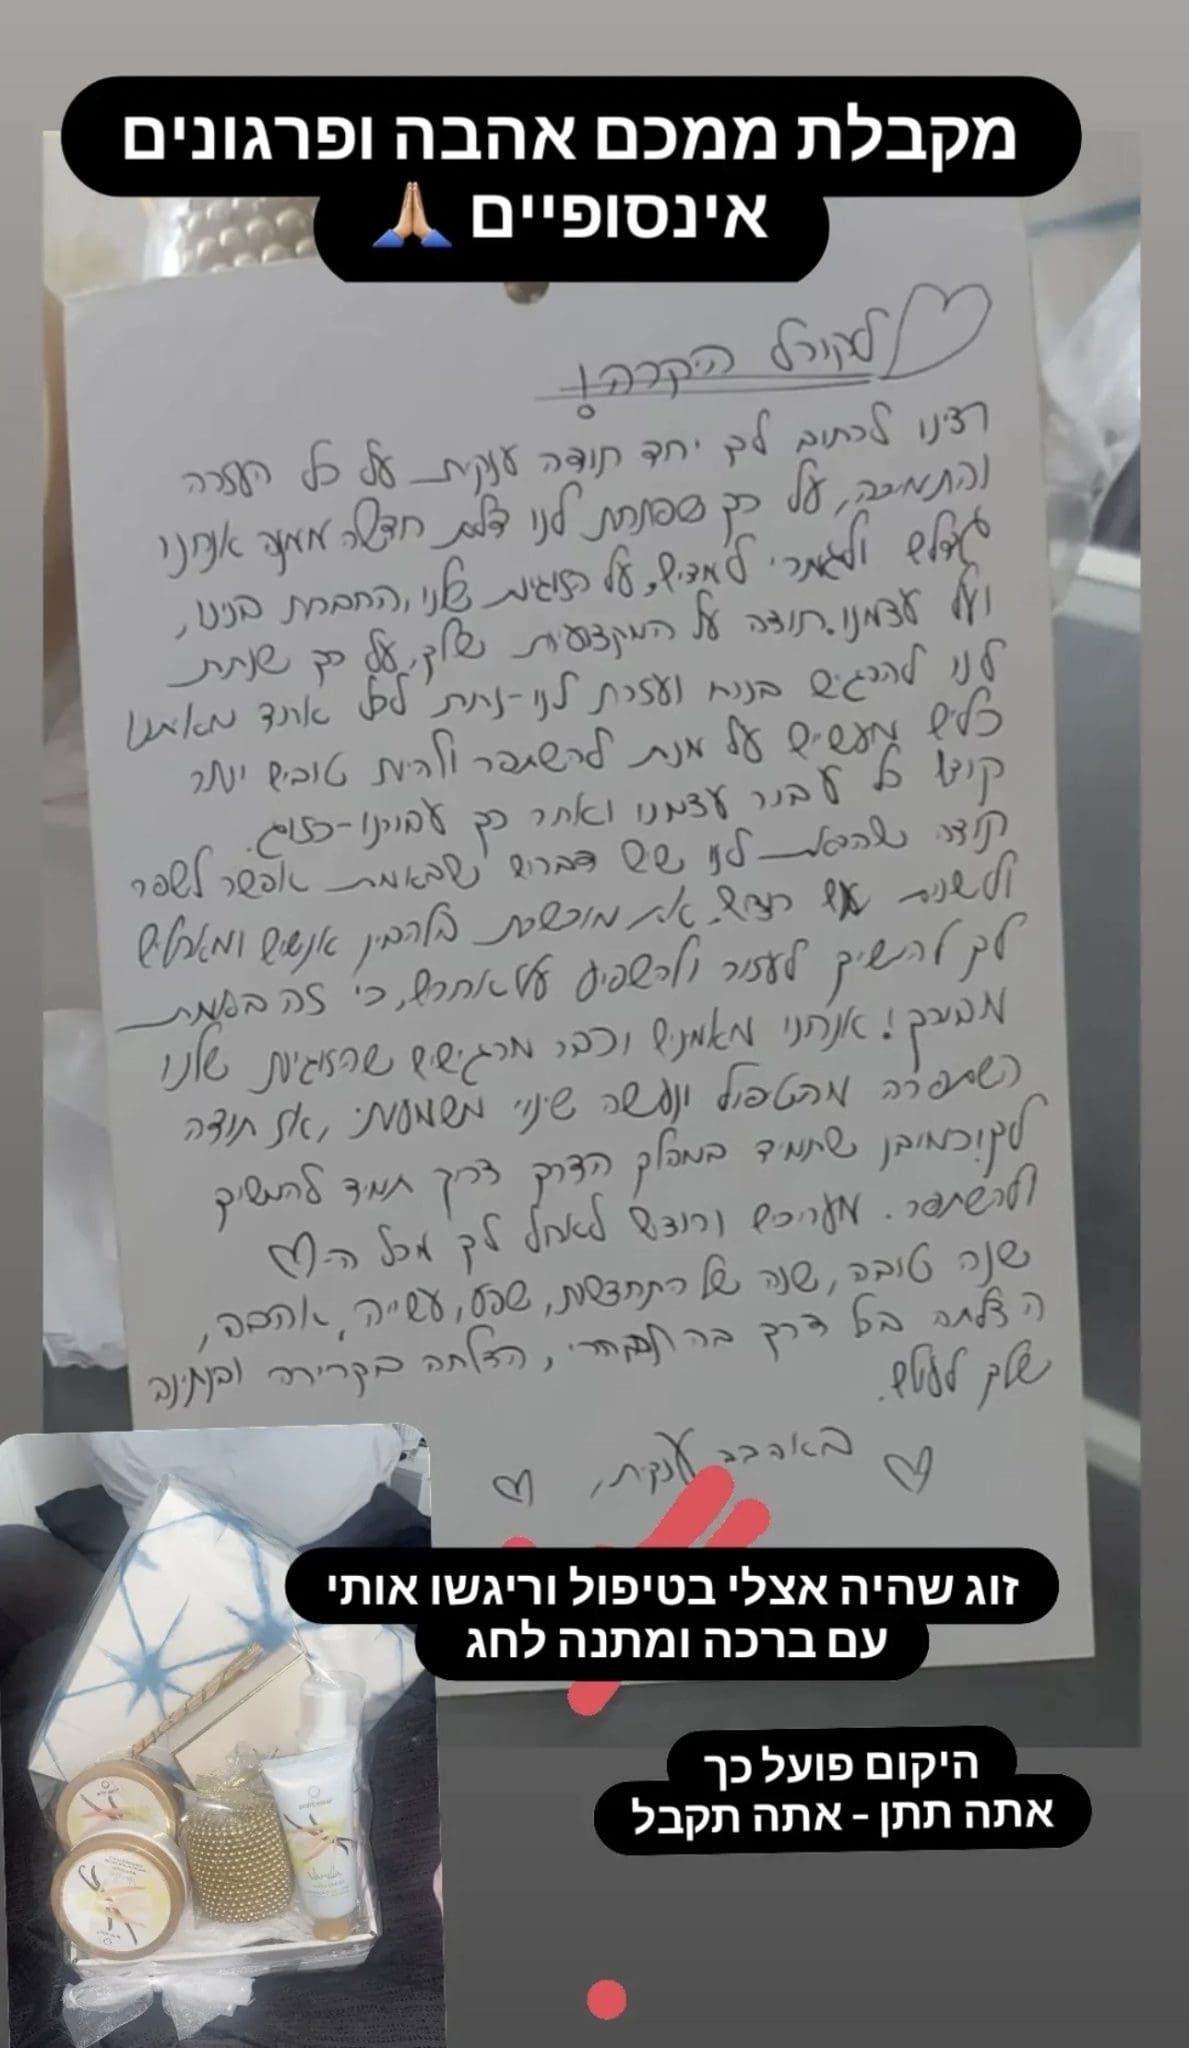 מקבלת ממכם אהבה ופרגונים
אינסופיים 🙏🏼
לקורל היקרה!
רצינו לכתוב לך יחד תודה ענקית על כל העזרה
והתמיכה, על כך שפתחת לנו דלת חדשה ממנה אנחנו
גדלים ולגמרי למדים, על הזוגיות שלנו, החברות בנינו,
ועל עצמנו. תודה על המקצועיות שלך, על כך שנתת
לנו להרגיש בנוח ועזרת לנו - נתת לכל אחד מאיתנו
כלים מעשיים על מנת להשתפר ולהיות טובים יותר
קודם כל עבור עצמנו ואחר כך עבורנו - כזוג.
תודה שהראת לנו שיש דברים שבאמת אפשר לשפר
ולשנות אם רוצים. את מוכשרת בלהבין אנשים ומאחלים
לך להמשיך לעזור ולהשפיע על אחרים, כי זה באמת
מבורך! אנחנו מאמינים וכבר מרגישים שהזוגיות שלנו
השתפרה מהטיפול ונעשה שינוי משמעותי, אז תודה
לך! כמובן שתמיד במהלך הדרך צריך תמיד להמשיך
ולהשתפר. מעריכים ורוצים לאחל לך מכל ה-♡
שנה טובה, שנה של התחדשות, שפע, עשייה, אהבה,
הצלחה בכל דרך בה תבחרי, הצלחה בקריירה ובנתינה
שלך לעולם.
באהבה ענקית,
זוג שהיה אצלי בטיפול וריגשו אותי
עם ברכה ומתנה לחג
היקום פועל כך
אתה תתן - אתה תקבל
Vanilla